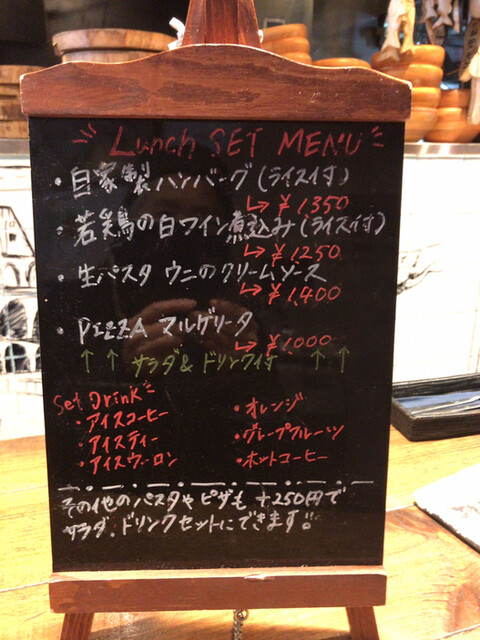 Lunch SET MENU
・自家製ハンバーグ(ライス付)
↳¥1350
・若鶏の白ワイン煮込み(ライス付)
↳¥1250
・生パスタ ウニのクリームソース
↳¥1,400
・PIZZA マルゲリータ
↳¥1,000
↑↑サラダ&ドリンク付↑↑
Set Drink
・アイスコーヒー ・オレンジ
・アイスティー ・グレープフルーツ
・アイスウーロン ・ホットコーヒー
その他のパスタやピザも +250円で
サラダ、ドリンクセットにできます!!